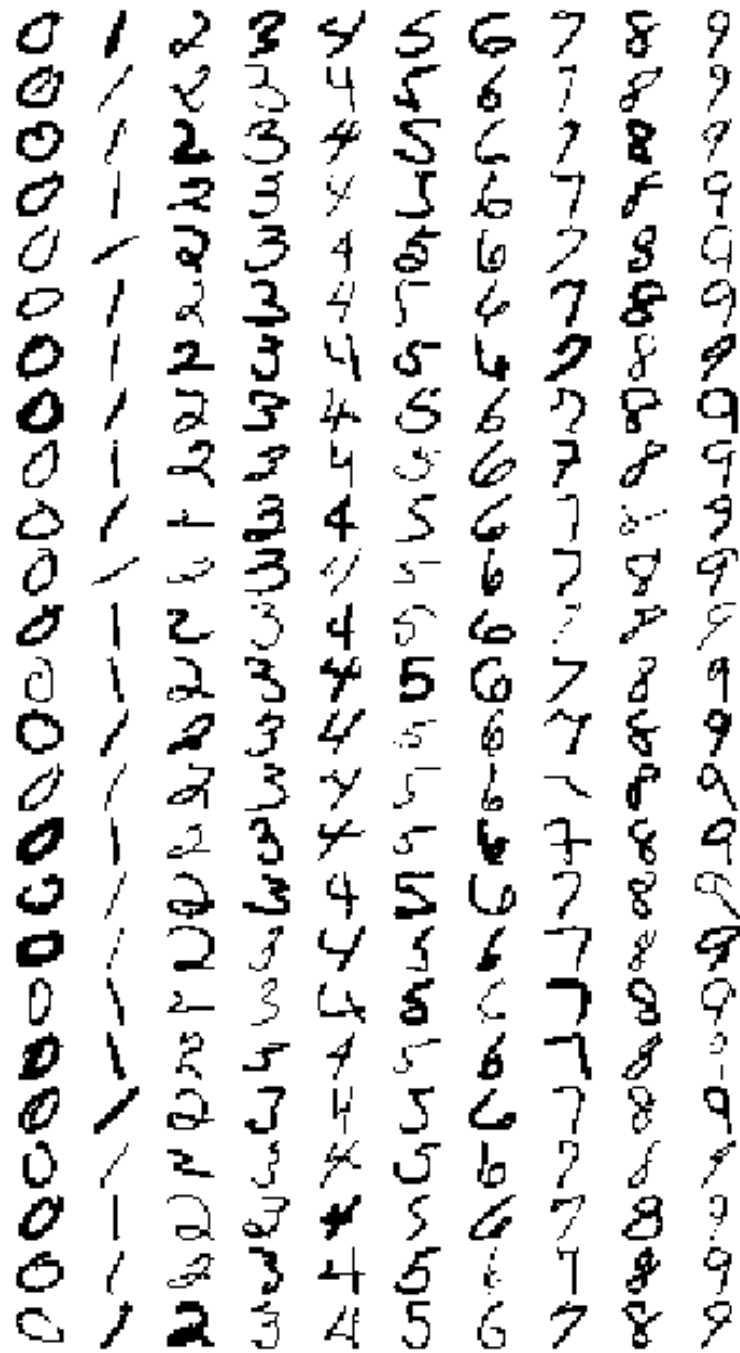 0 1 2 3 4 5 6 7 8 9
0 1 2 3 4 5 6 7 8 9
0 1 2 3 4 5 6 7 8 9
0 1 2 3 4 5 6 7 8 9
0 1 2 3 4 5 6 7 8 9
0 1 2 3 4 5 6 7 8 9
0 1 2 3 4 5 6 7 8 9
0 1 2 3 4 5 6 7 8 9
0 1 2 3 4 5 6 7 8 9
0 1 2 3 4 5 6 7 8 9
0 1 2 3 4 5 6 7 8 9
0 1 2 3 4 5 6 7 8 9
0 1 2 3 4 5 6 7 8 9
0 1 2 3 4 5 6 7 8 9
0 1 2 3 4 5 6 7 8 9
0 1 2 3 4 5 6 7 8 9
0 1 2 3 4 5 6 7 8 9
0 1 2 3 4 5 6 7 8 9
0 1 2 3 4 5 6 7 8 9
0 1 2 3 4 5 6 7 8 9
0 1 2 3 4 5 6 7 8 9
0 1 2 3 4 5 6 7 8 9
0 1 2 3 4 5 6 7 8 9
0 1 2 3 4 5 6 7 8 9
0 1 2 3 4 5 6 7 8 9